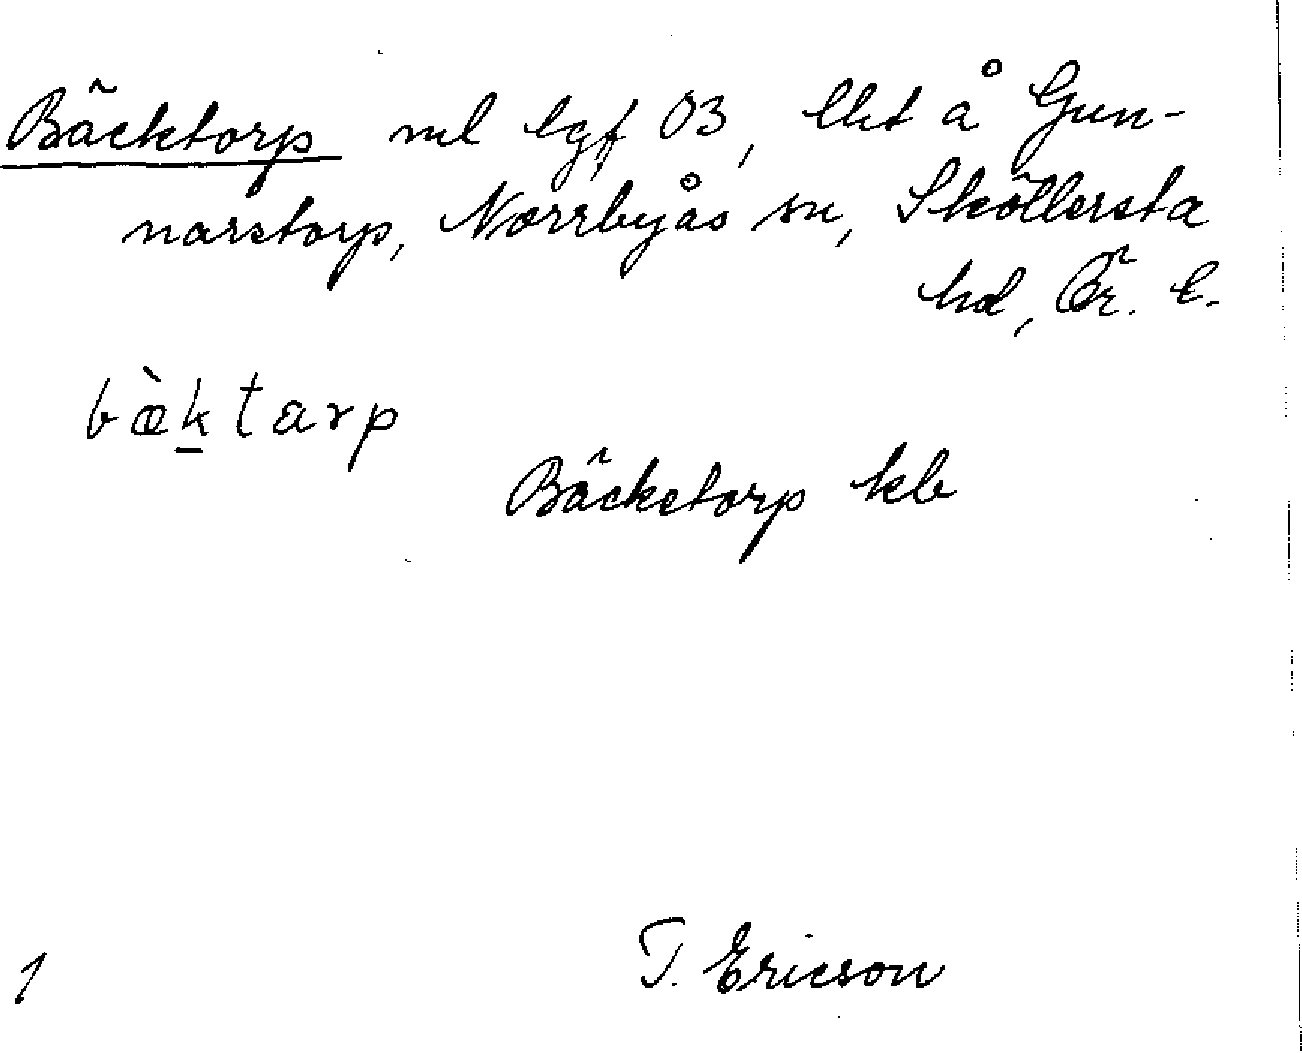 Bäcktorp ml lgf 03, lht å Gun-
narstorp, Norrbyås sn, Sköllersta
hd, Ör. l.
bæ̀k̲tarp
Bäckstorp kb
T. Ericson
1